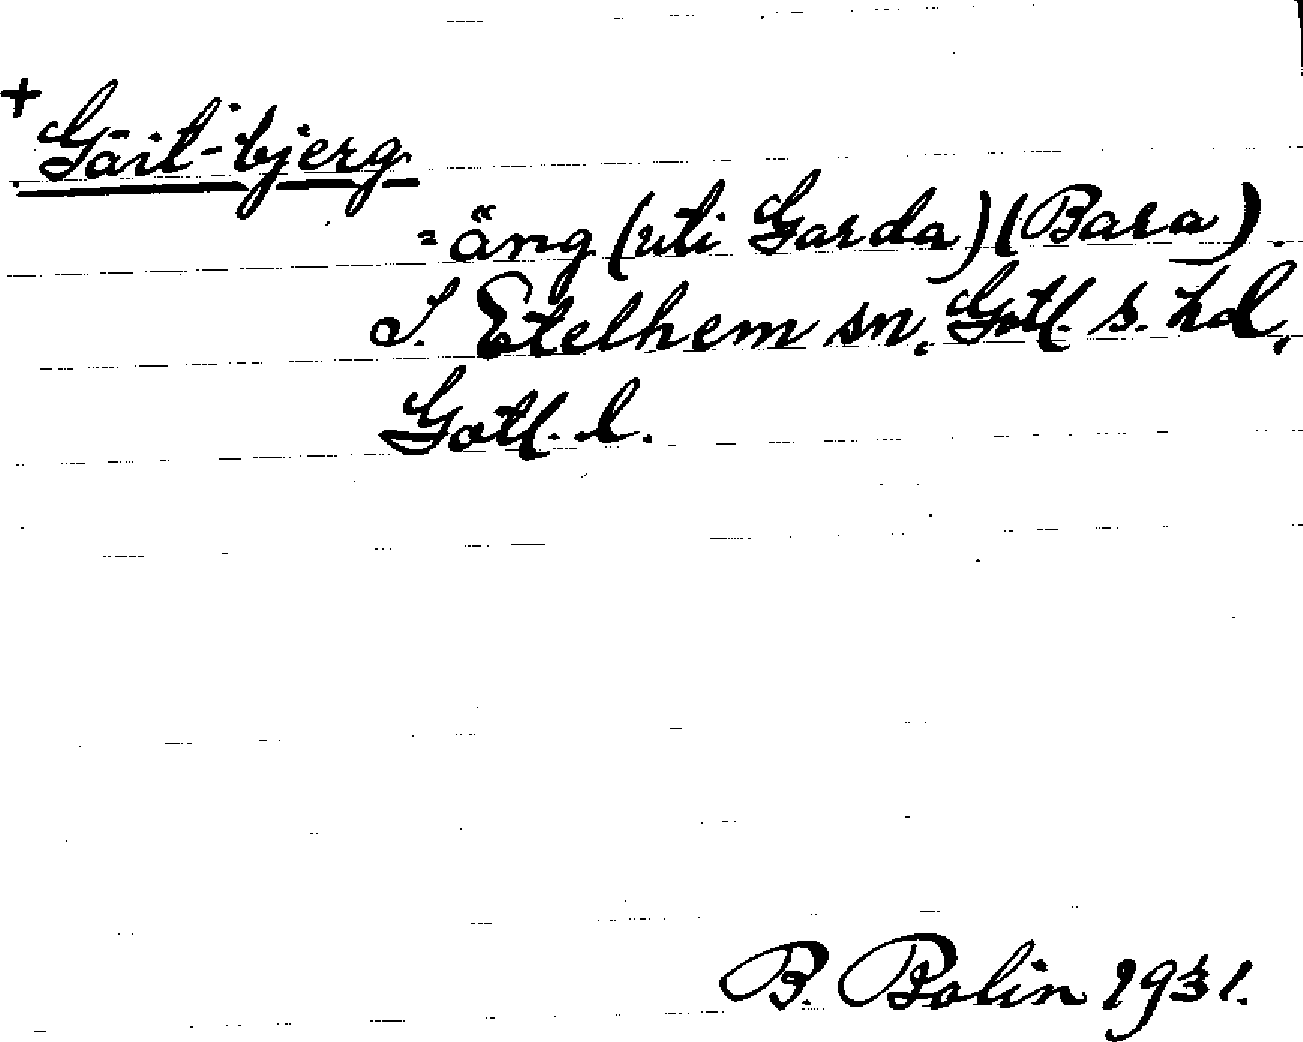 + Gäit-bjerg
= äng (uti Garda) (Bara).
I. Etelhem sn, Gotl. s. hd,
Gotl. l.
B. Bolin 1931.